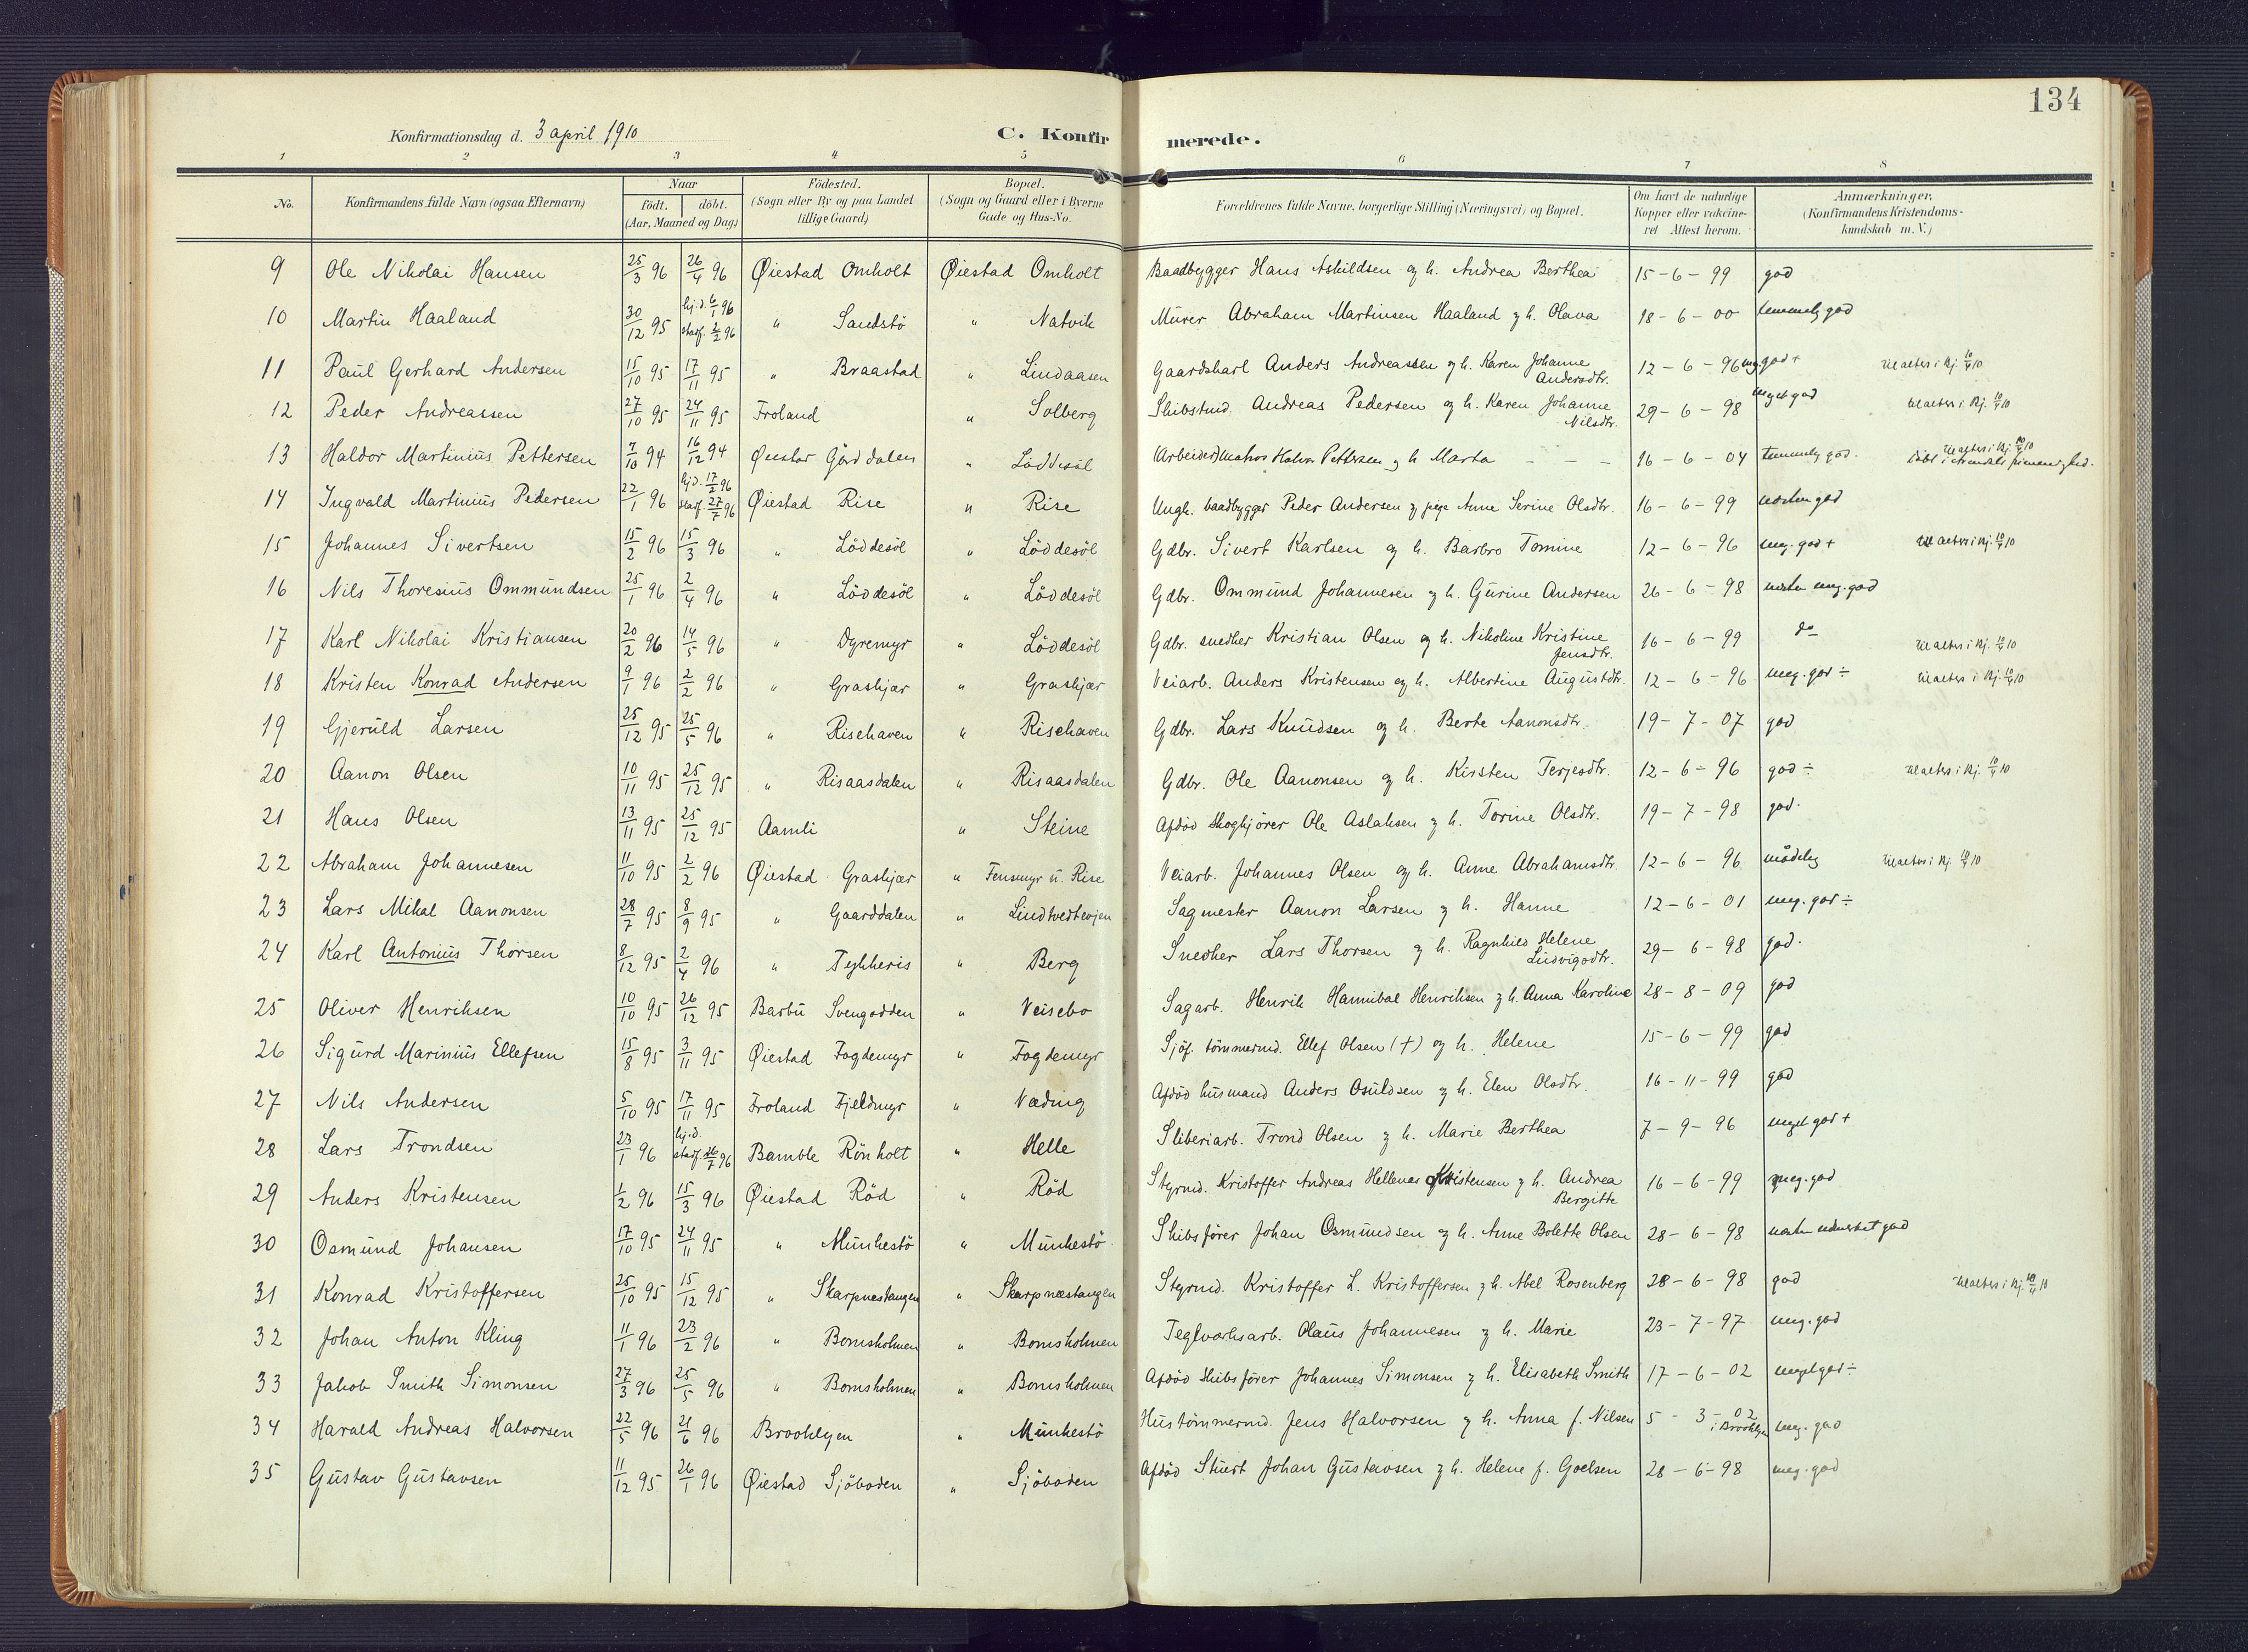 134
Konfirmationsdag d. 3 april 1910 C. Konfirmerede.
1 2 3 4 5 6 7 8
No. Konfirmandens fulde Navn (ogsaa Efternavn) Naar födt. döbt. (Aar, Maaned og Dag) Födested. (Sogn eller By og paa Landet tillige Gaard) Bopæl. (Sogn og Gaard eller i Byerne Gade og Hus-No. Forældrenes fulde Navne, borgerlige Stilling (Næringsvei) og Bopæl. Om havt de naturlige Kopper eller vakcineret Attest herom. Anmærkninger. (Konfirmandens Kristendomskundskab m. V.)
9 Ole Nikolai Hansen 25/3 96 26/4 96 Øiestad Omholt Øiestad Omholt Baadbygger Hans Askildsen og h. Andrea Berthea 15-6-99 god
10 Martin Haaland 30/12 95 hj.d. 6/1 96 stadf. 2/2 96 " Sandstö " Natvik Murer Abraham Martinsen Haaland og h. Olava 18-6-00 temmelig god
11 Paul Gerhard Andersen 15/10 95 17/11 95 " Braastad " Lindaasen Gaardskarl Anders Andreassen og h. Karen Johanne Andersdtr. 12-6-96 mg. god + til alters i Kj. 10/4 10
12 Peder Andreassen 27/10 95 24/11 95 Froland " Solberg Skibstmd. Andreas Pedersen og h. Karen Johanne Nilsdtr. 29-6-98 meget god til alters i Kj. 10/4 10
13 Haldor Martinius Pettersen 7/10 94 16/12 94 Øiestad Gårddalen " Löddesöl (Arbeider) matros Halvor Pettersen og h Marta - - - 16-6-04 temmelig god. til alters i Kj. 10/4 10 Döbt i Arendals
14 Ingvald Martinius Pedersen 22/1 96 hj.d. 17/2 96 stadf. 27/7 96 Øiestad Rise " Rise Ungk. baadbygger Peder Andersen og pige Anne Serine Olsdtr. 16-6-99 næsten god
15 Johannes Sivertsen 15/2 96 15/3 96 " Löddesöl " Löddesöl Gdbr. Sivert Karlsen og h. Barbro Tomine 12-6-96 meg. god + til alters i Kj. 10/4 10
16 Nils Thoresius Ommundsen 25/1 96 2/4 96 " Löddesöl " Löddesöl Gdbr. Ommund Johannesen og h. Gurine Andersen 26-6-98 næsten meg. god
17 Karl Nikolai Kristiansen 20/2 96 14/5 96 " Dyremyr " Löddesöl Gdbr. snedker Kristian Olsen og h. Nikoline Kristine Jensdtr. 16-6-99 do til alters i Kj. 10/4 10
18 Kristen Konrad Andersen 9/1 96 2/2 96 " Graskjær " Graskjær Veiarb. Anders Kristensen og h. Albertine Augustdtr. 12-6-96 meg. god ÷ til alters i Kj. 10/4 10
19 Gjeruld Larsen 25/12 95 25/5 96 " Risehaven " Risehaven Gdbr. Lars Knudsen og h. Berte Aanonsdtr. 19-7-07 god
20 Aanon Olsen 10/11 95 25/12 95 " Risaasdalen " Risaasdalen Gdbr. Ole Aanonsen og h. Kirsten Terjesdtr. 12-6-96 god ÷ til alters i Kj. 10/4 10
21 Hans Olsen 13/11 95 25/12 95 Aamli " Steine Afdöd skogkjörer Ole Aslaksen og h. Torine Olsdtr. 19-7-98 god.
22 Abraham Johannesen 11/10 95 2/2 96 Øiestad Graskjær " Fensmyr u. Rise Veiarb. Johannes Olsen og h. Anne Abrahamsdtr. 12-6-96 mådelig til alters i Kj. 10/4 10
23 Lars Mikal Aanonsen 28/7 95 8/9 95 " Gaarddalen " Lindtvedtveien Sagmester Aanon Larsen og h. Hanne 12-6-01 meg. god ÷
24 Karl Antonius Thorsen 8/12 95 2/4 96 " Tykkeris " Berg Snedker Lars Thorsen og h. Ragnhild Helene Ludvigsdtr. 29-6-98 god.
25 Oliver Henriksen 10/10 95 26/12 95 Barbu Svengodden " Veisebo Sagarb. Henrik Hannibal Henriksen og h. Anna Karoline 28-8-09 god
26 Sigurd Marinius Ellefsen 15/8 95 3/11 95 Øiestad Fogdemyr " Fogdemyr Sjöf. tömmermd. Ellef Olsen (†) og h. Helene 15-6-99 god
27 Nils Andersen 5/10 95 17/11 95 Froland Fjeldmyr " Næding Afdöd husmand Anders Osuldsen og h. Elen Olsdtr. 16-11-99 god
28 Lars Trondsen 23/1 96 hj.d. stadf. 26/7 96 Bamble Rönholt " Helle Sliberiarb. Trond Olsen og h. Marie Berthea 7-9-96 meget god +
29 Anders Kristensen 1/2 96 15/3 96 Øiestad Röd " Röd Styrmd. Kristoffer Andreas Hellenes Kristensen og h. Andrea Bergitte 16-6-99 meg. god
30 Osmund Johansen 17/10 95 24/11 95 " Munkestö " Munkestö Skibsförer Johan Osmundsen og h. Anne Bolette Olsen 28-6-98 næsten udmerket god
31 Konrad Kristoffersen 25/10 95 15/12 95 " Skarpnestangen " Skarpnæstangen Styrmd. Kristoffer L. Kristoffersen og h. Abel Rosenberg 28-6-98 god til alters i Kj. 10/4 10
32 Johan Anton Kling 11/1 96 23/2 96 " Bomsholmen " Bomsholmen Teglværksarb. Olaus Johannesen og h. Marie 23-7-97 meg. god
33 Jakob Smith Simonsen 27/3 96 25/5 96 " Bomsholmen " Bomsholmen Afdöd skibsförer Johannes Simonsen og h. Elisabeth Smith 17-6-02 meget god ÷
34 Harald Andreas Halvorsen 22/5 96 21/6 96 Brooklyn " Munkestö Hustömmermd. Jens Halvorsen og h. Anna f. Nilsen 5-3-02 i Brooklyn meg. god
35 Gustav Gustavsen 11/12 95 26/1 96 Øiestad Sjöboden " Sjöboden Afdöd Stuert Johan Gustavsen og h. Helene f. Goelsen 28-6-98 meg. god